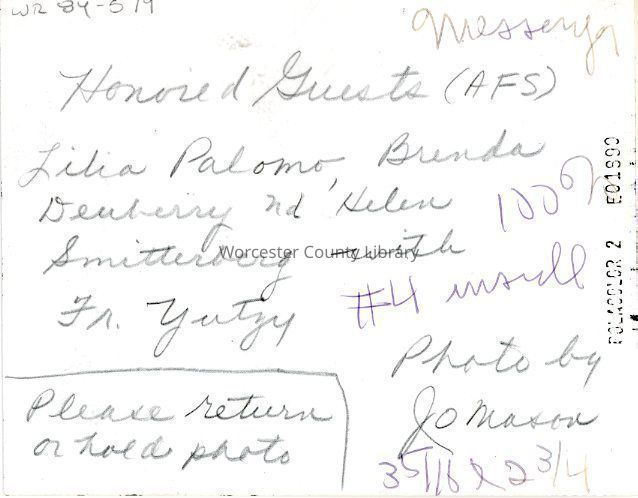 WR 84-519
Messenger
Honored Guests (AFS)
Lilia Palomo, Brenda
Deuberry nd Helen
Smitterberg with
Fr. Yutzy
100%
#4 inside
Worcester County Library
POLACOLOR 2 E01690
Photo by
Jo Mason
Please return
or hold photo
3 5/16 x 2 3/4